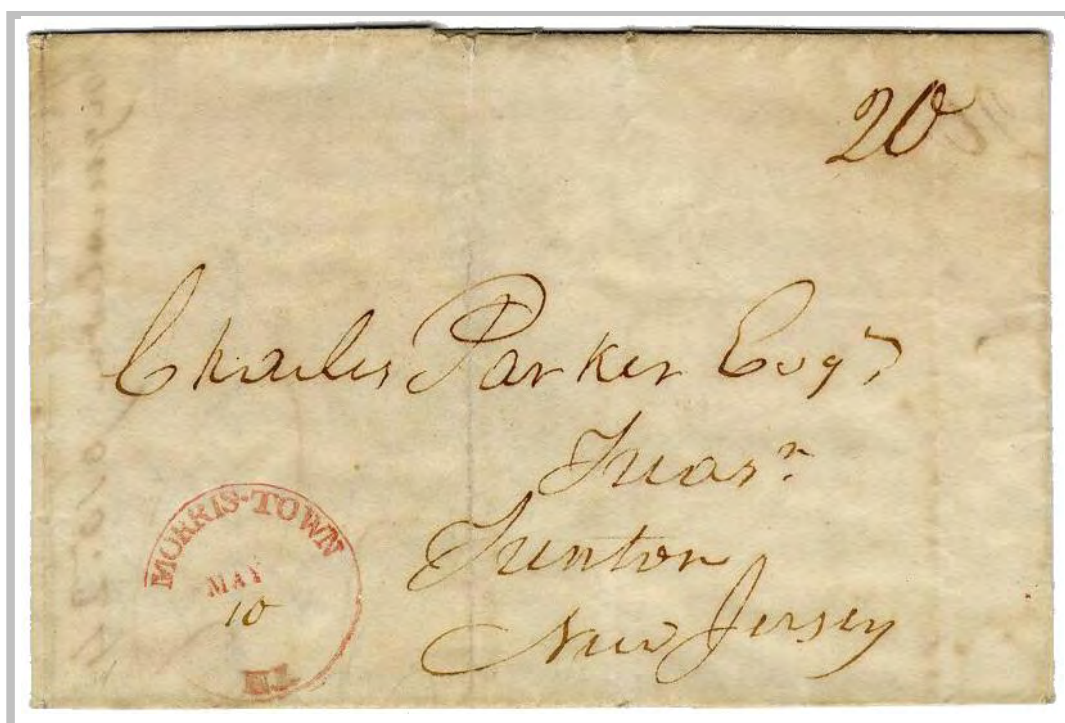 20
Charles Parker Esqr
Treasr
Trenton
New Jersey
MORRIS-TOWN
MAY
10
N.J.